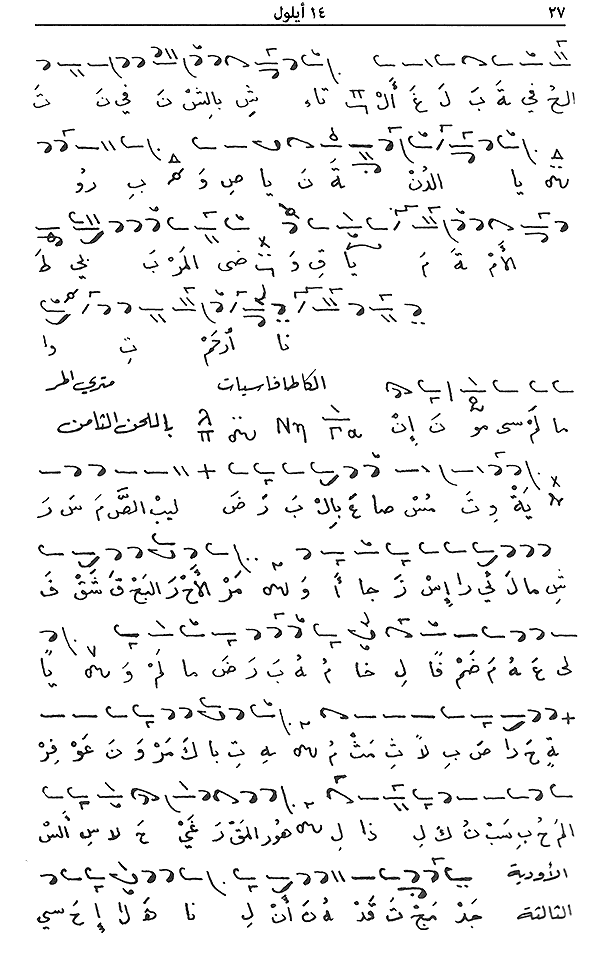 ٢٧ ١٤ أيلول
الحُ في ةَ بَ لَ غَ أَلْ تاءِ شِ بِالشْ نَ في نَ ثَ
يا الدُنْ ةَ نَ يا صِ وَ بِ دُو
الأُمْ ةَ مَ يا قِ وَ ضى المَرْ بَ لي طَ
نا أرحَمْ تِ وا
الكاطافاسيات متري المر
ما لَمْ سى مو نَ إنْ باللحن الثامن
يَةْ وِ تَ مُسْ صا عَ بِالْ بَ رَ ضَ ليبْ الصَّ مَ سَ رَ
شِ مالَ ئي را إسْ زَ جا أَ وَ مَرْ الأَحْ رَ البَحْ قَ شَقْ فَ
لى عَ هُ مَ ضَمْ قا لِ خا مُ هُ بَ رَ ضَ ما لَمْ وَ ياً
ةٍ حَ دا صَ بِ لاً ثِ مَثْ مُ هِ تِ با كَ مَرْ وَ نَ عَوْ فِرْ
المَ حُ بِ سَبْ نُ كَ لِ ذا لِ هور المَقْ رَ غَيْ حَ لا سِ ألسْ
الأودية
الثالثة جَدْ مَجْ تَ قَدْ هُ نَ أَنْ لِ نا هَ لا إِ حَ سي